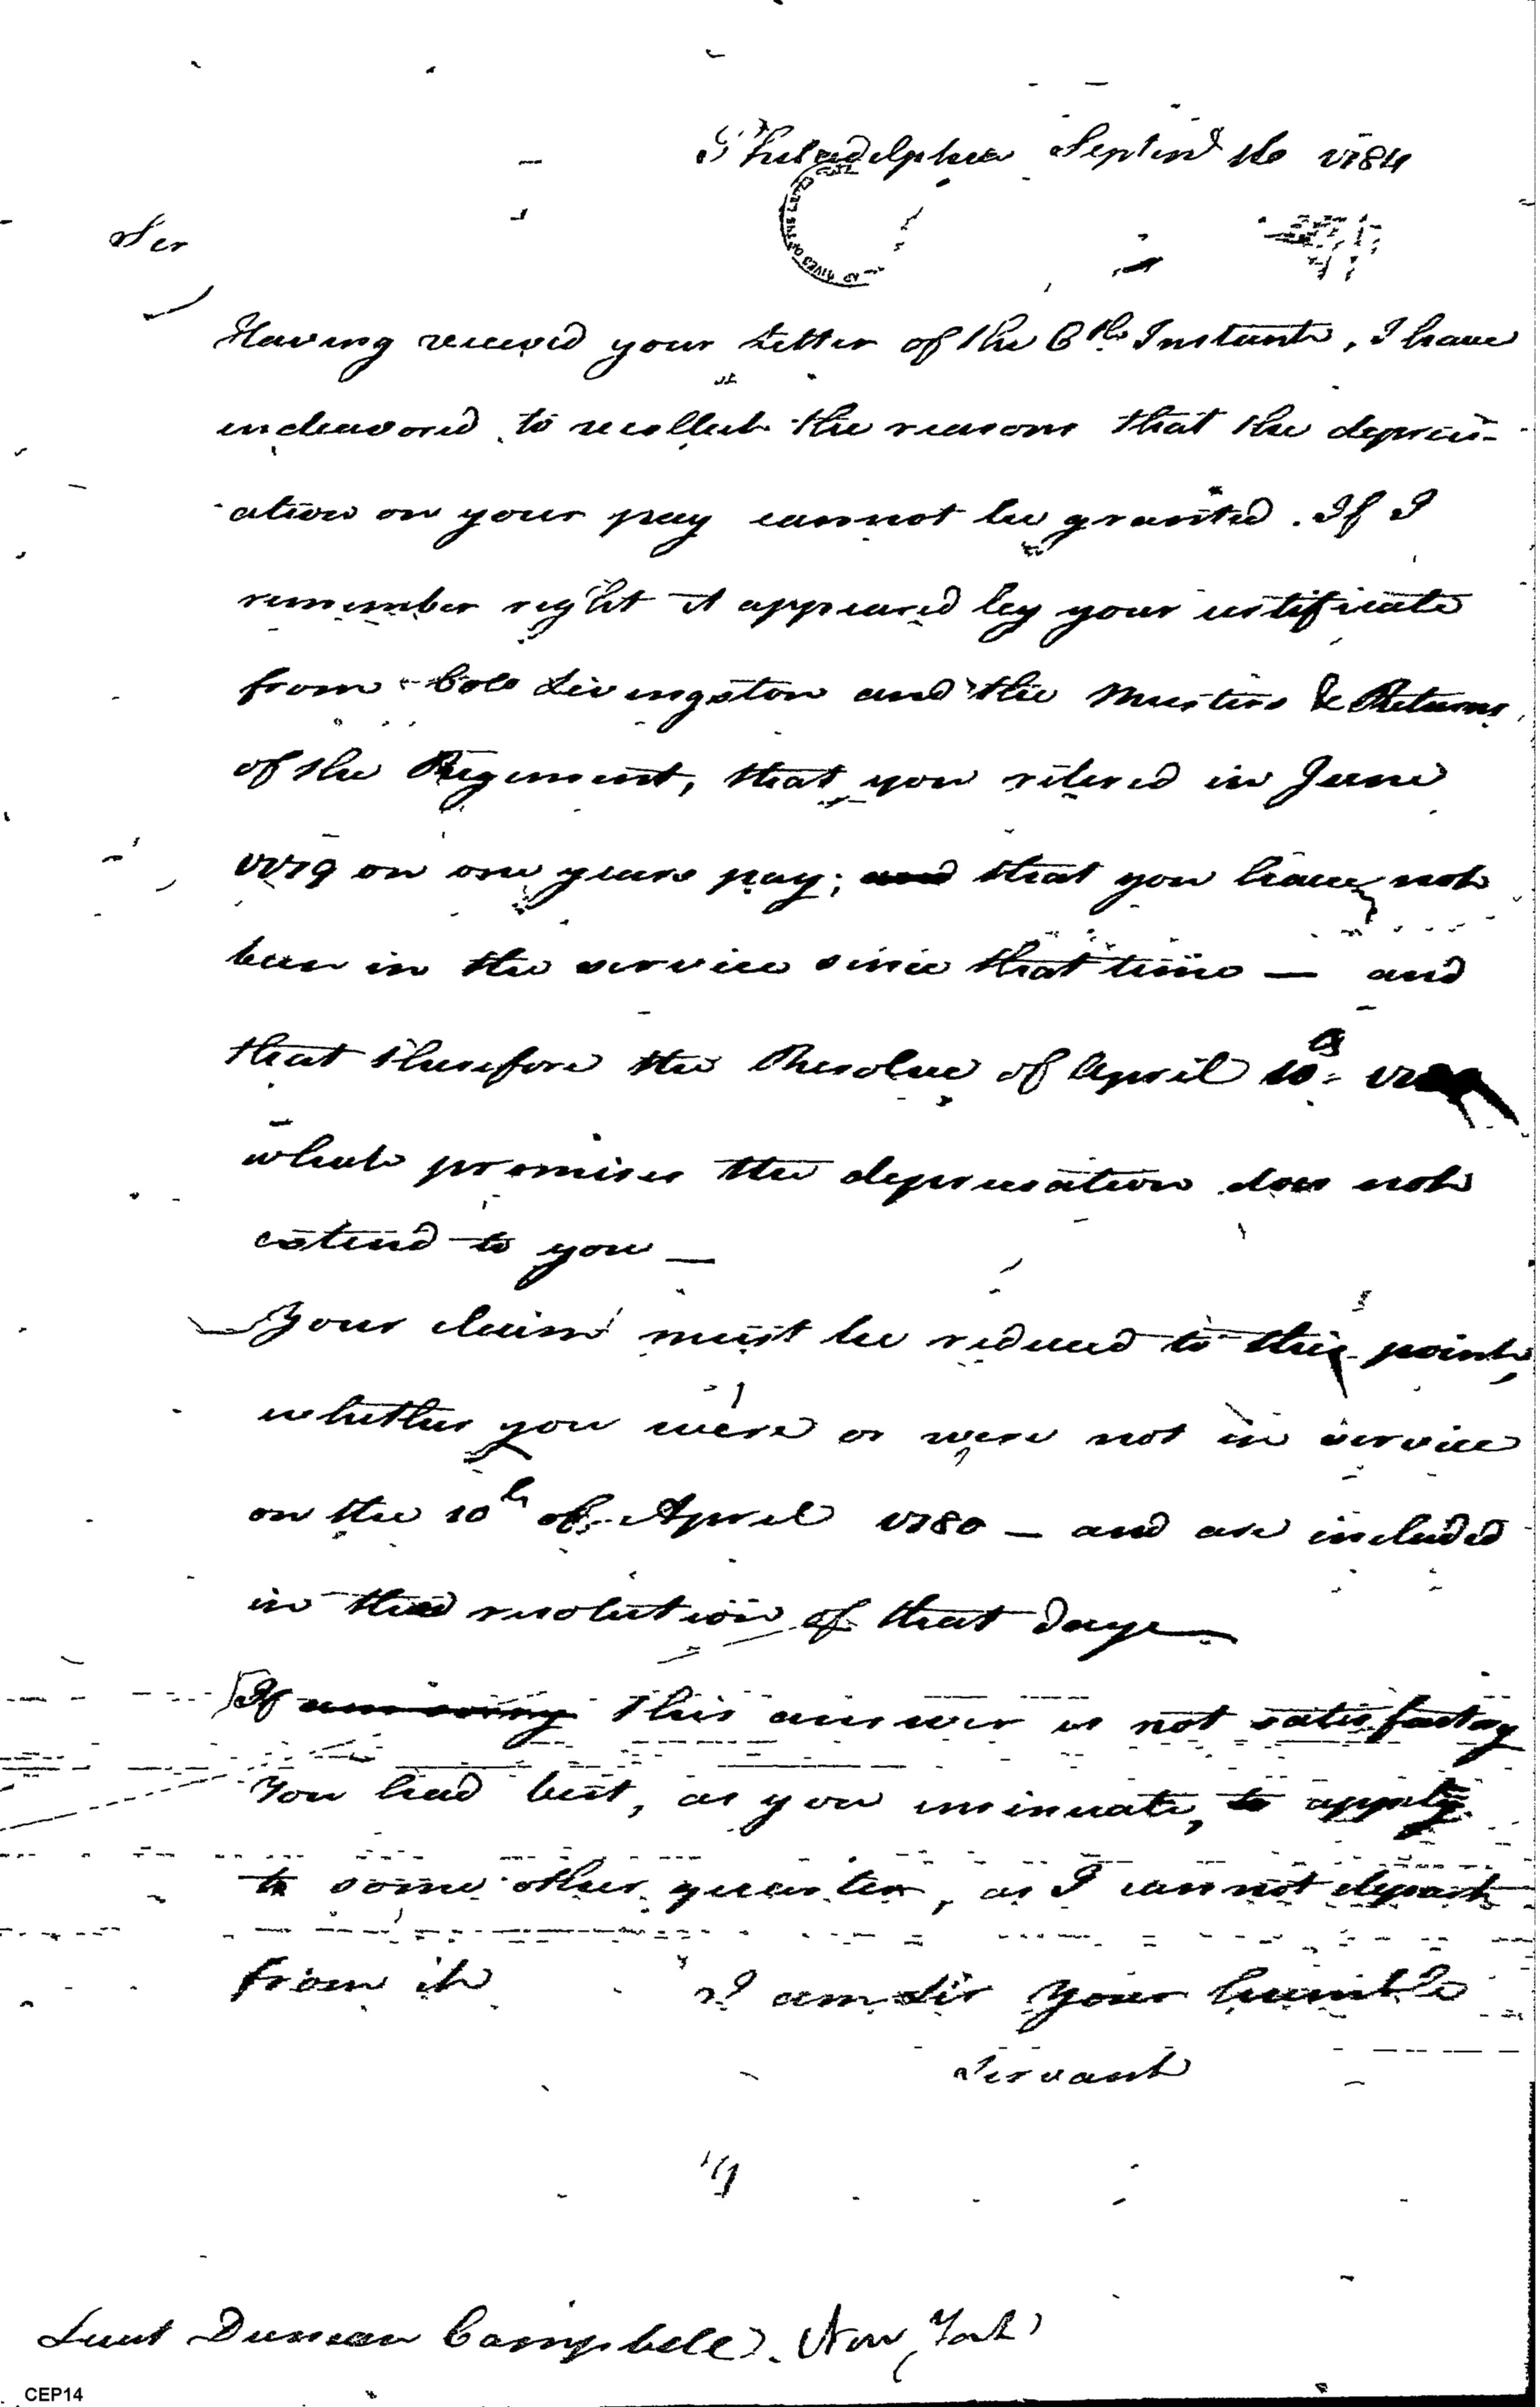 Philadelphia Septemr 16 1784
Sir
Having received your Letter of the 6th Instant, I have
endeavored to recollect the reasons that the depreci-
ation on your pay cannot be granted. If I
remember right it appeared by your certificate
from Colo Livingston and the Musters & Returns
of the Regiment, that you retired in June
1779 on one years pay; and that you have not
been in the service since that time — and
that therefore the Resolve of April 10th
which promises the depreciation does not
extend to you —
Your claim must be reduced to this point,
whether you were or were not in service
on the 10th of April 1780 — and are included
in the resolution of that day
If this answer is not satisfactory
You had best, as you insinuate, to apply
to some other quarter, as I cannot depart
from it I am Sir your humble
Servant
Lieut Duncan Campbell. New York
CEP14